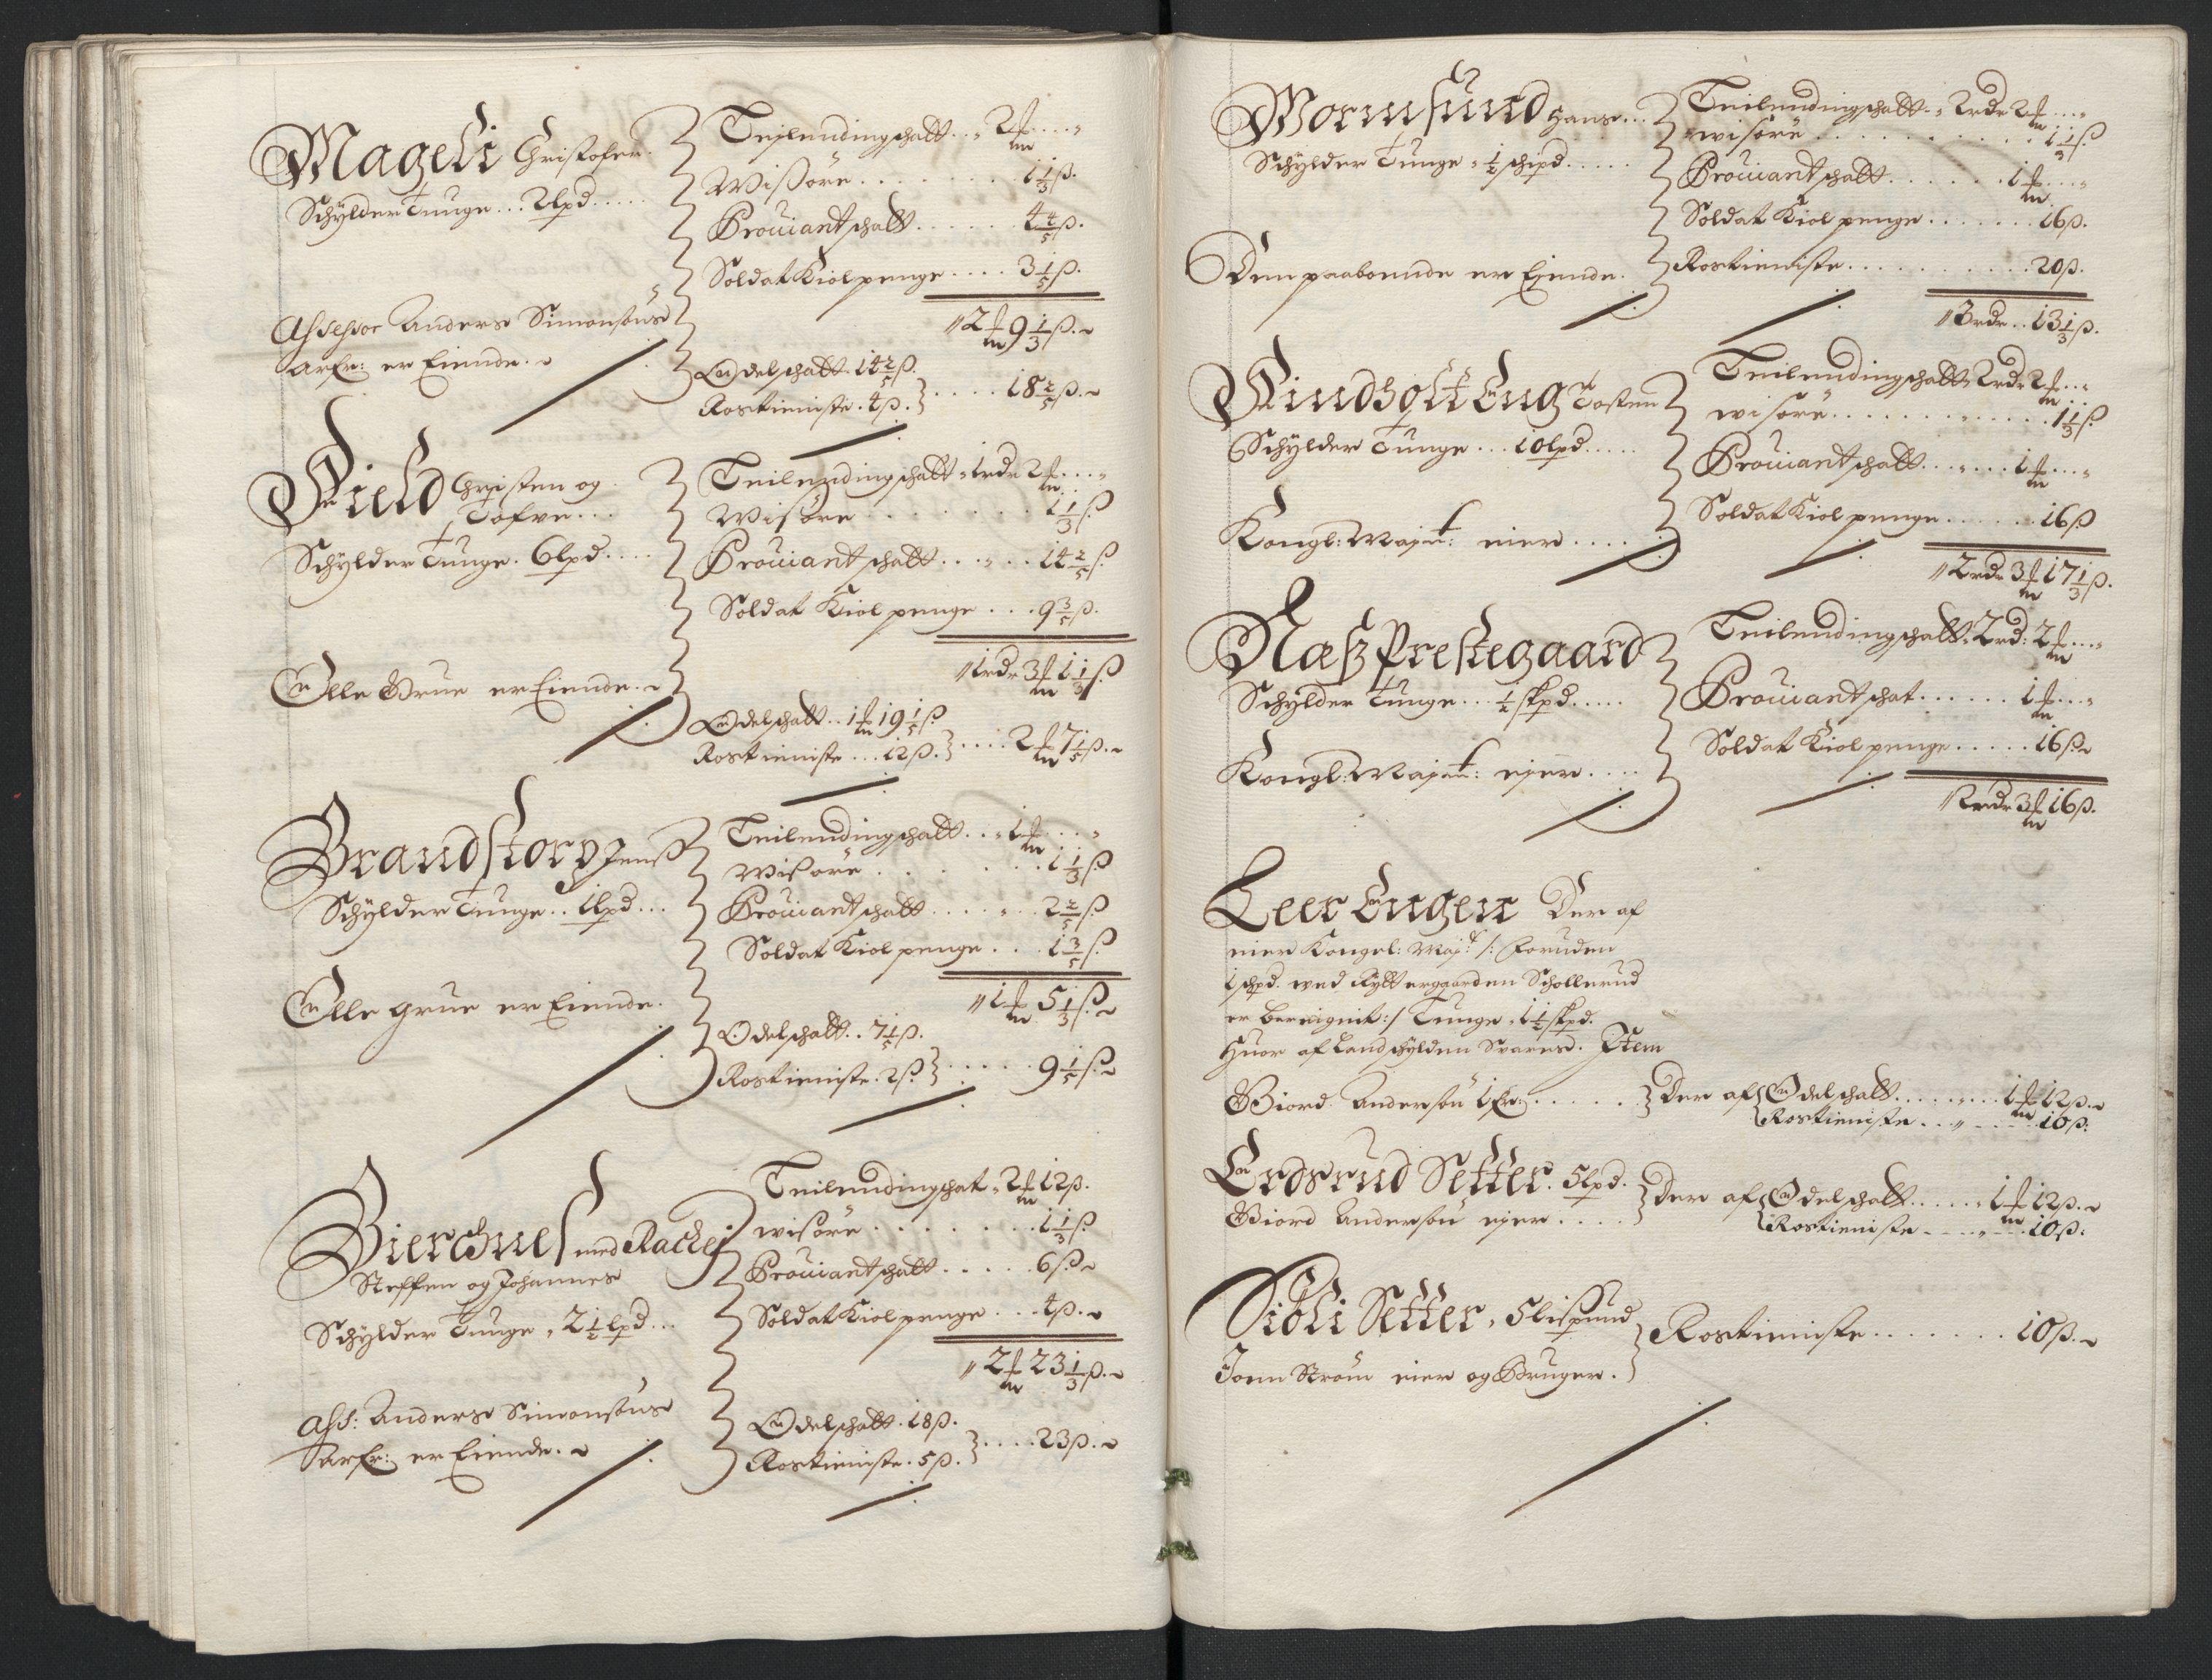 Mageli Christofer.
Schylder Tunge... 2 lpd.....
Assessor Anders Simonsøns
arfr: er Eiende.
Teilendingschatt.. 2 m̶....
Wissøre........ 1 1/3 ß.
Prouiantschatt...... 4 4/5 ß.
Soldat Kiolpenge.... 3 1/5 ß.
2 m̶ 9 1/3 ß.
Odelschatt. 14 2/5 ß.
Rostieniste. 4 ß. .... 18 2/5 ß.
Field Christen og
Tofve...
Schylder Tunge. 6 lpd....
Olle Grue er Eiende.
Teilendingschatt 1 rdr 2 m̶....
Wissøre....... 1 1/3 ß
Prouiantschatt...... 14 2/5 ß.
Soldat Kiolpenge... 9 3/5 ß.
1 rdr 3 m̶ 1 1/3 ß
Odelschatt.. 1 m̶ 19 1/5 ß.
Rostieniste... 12 ß. .... 2 m̶ 7 1/5 ß.
Brandstorp Jenß
Schylder Tunge.. 1 lpd...
Olle Grue er Eiende.
Teilendingschatt... 1 m̶....
Wissøre....... 1 1/3 ß
Prouiantschatt...... 2 2/5 ß
Soldat Kiolpenge... 1 3/5 ß.
1 m̶ 5 1/3 ß.
Odelschatt.. 7 1/5 ß.
Rostieniste. 2 ß. ..... 9 1/5 ß.
Bierchnes med Rackej
Steffen og Johannes
Schylder Tunge, 2 1/2 lpd...
Ass: Anders Simonsøns
arfr: er Eiende.
Teilendingschat, 2 m̶ 12 ß.
wissøre........ 1 1/3 ß.
Prouiantschatt..... 6 ß.
Soldat Kiolpenge... 4 ß.
2 m̶ 23 1/3 ß.
Odelschatt. 18 ß.
Rostieniste. 5 ß. .... 23 ß.
Wormsund Hans...
Schylder Tunge, 1/2 schpd.....
Den paaboende er Eiende.
Teilendingschatt.. 2 rdr 2 m̶...
wissøre.......... 1 1/3 ß
Prouiantschatt...... 1 m̶....
Soldat Kiolpenge....... 16 ß.
Rostieniste.......... 20 ß.
3 rdr.. 13 1/3 ß.
Windholt Eng Tosten
Schylder Tunge... 10 lpd.....
Kongl: Maytt: eier....
Teilendingschatt, 2 rdr 2 m̶...
wissøre.......... 1 1/3 ß
Prouiantschatt...... 1 m̶....
Soldat Kiolpenge...... 16 ß
2 rdr 3 m̶ 17 1/3 ß.
Næß Prestegaard
Schylder Tunge... 1/2 skpd.....
Kongl: Maytt: ejer....
Teilendingschatt, 2 rd: 2 m̶...
Prouiantschat...... 1 m̶...
Soldat Kiolpenge..... 16 ß.
2 rdr 3 m̶ 16 ß.
Leer Engen Der af
eier Kongel: Mayt: /: Foruden
1 schpd. wed Rytterggarden Schollerud
er bereignit :/ Tunge, 1 1/2 skpd.
Huor af Landschylden Svares. Item
Giord Andersøn 1 fr: ...... Der af Odelschatt........ 1 m̶ 12 ß.
Rostieniste....... 10 ß:
Erdsrud Setter. 5 lpd.
Giord Andersøn ejer....
Der af Odelschatt...... 1 m̶ 12 ß.
Rostieniste....... 10 ß:
Sibli Setter, 5 lispund
Joen Strøm eier og Bruger.
Rostieniste....... 10 ß.